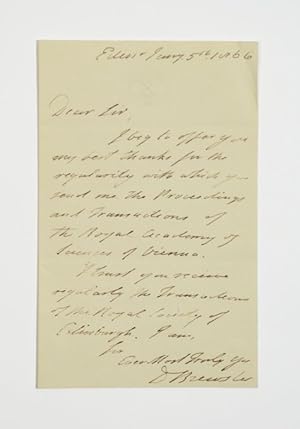 Edinr Jany 5th 1866
Dear Sir,
I beg to offer you
my best thanks for the
regularity with which you
send me the Proceedings
and Transactions of
the Royal Academy of
Sciences of Vienna.
I trust you receive
regularly the Transactions
of the Royal Society of
Edinburgh. I am,
Sir
Ever Most Truly Yrs
D Brewster